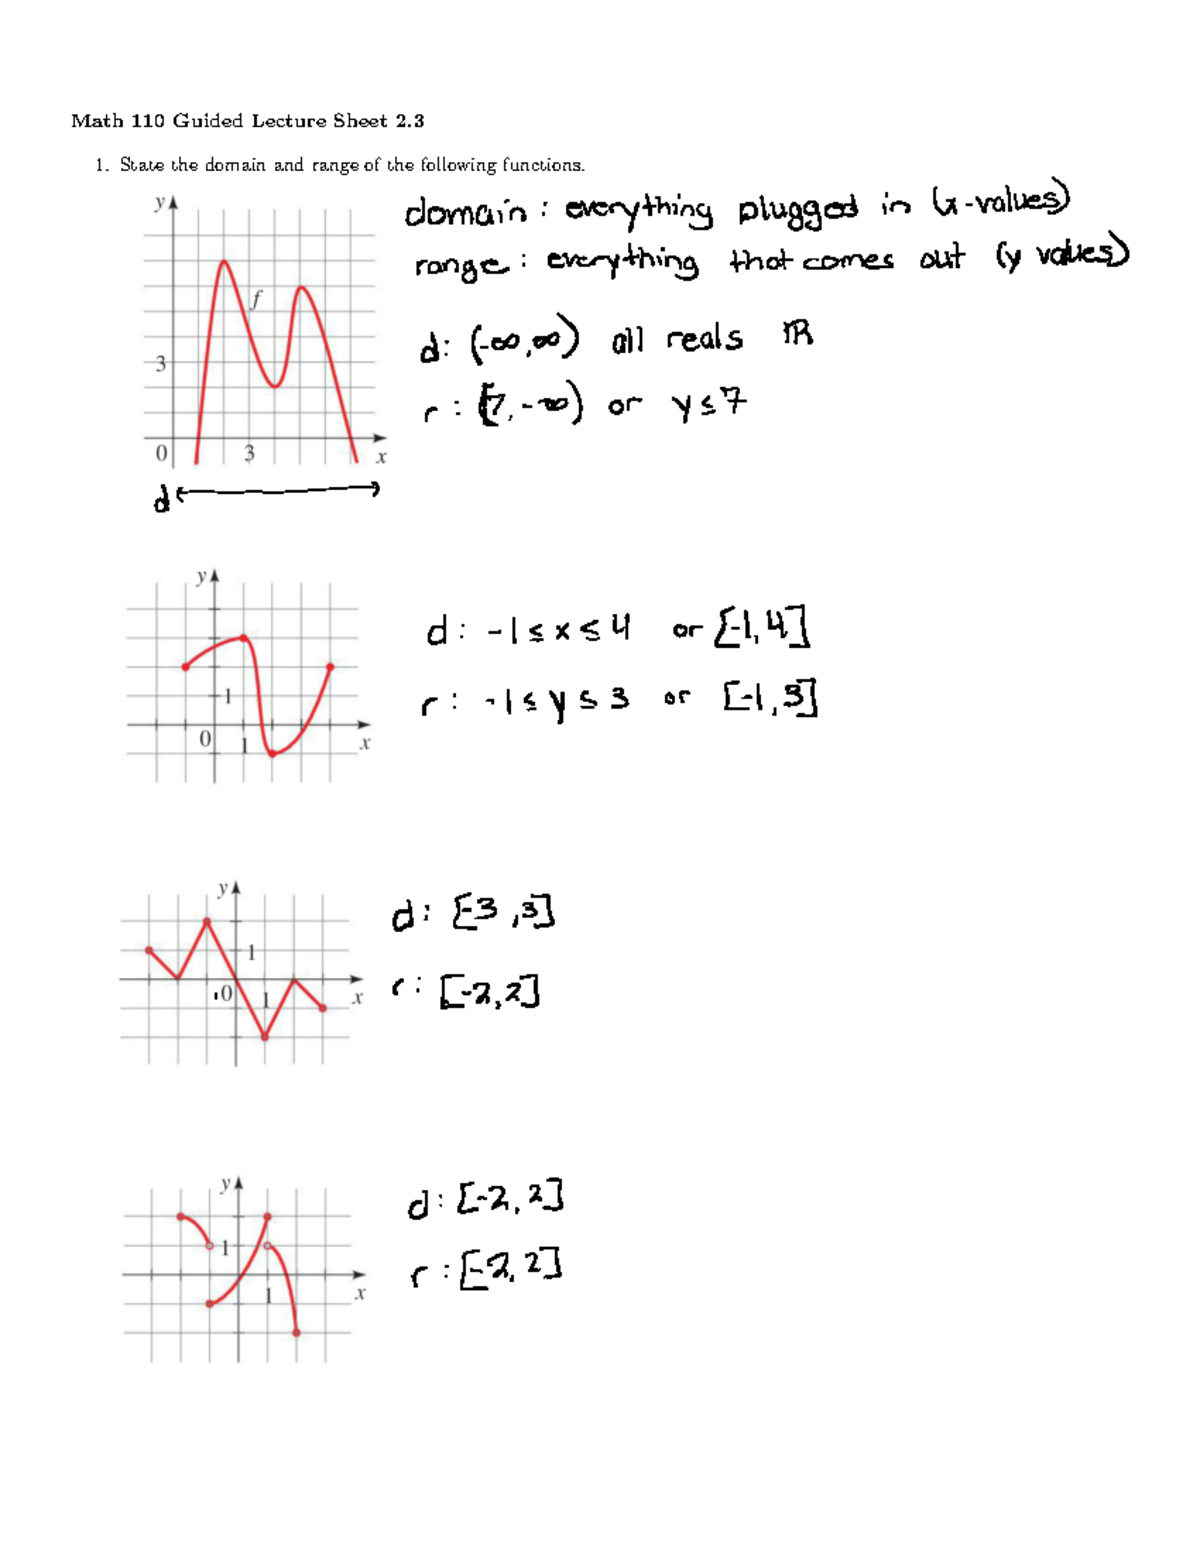 Math 110 Guided Lecture Sheet 2.3
1. State the domain and range of the following functions.
domain : everything plugged in (x-values)
range : everything that comes out (y values)
y
f
3
0
3
x
d: (-∞,∞) all reals ℝ
r : [7, -∞) or y ≤ 7
d
y
1
0
1
x
d : -1 ≤ x ≤ 4 or [-1, 4]
r : -1 ≤ y ≤ 3 or [-1, 3]
y
1
0
1
x
d : [-3 , 3]
r : [-2, 2]
y
1
1
x
d : [-2, 2]
r : [-2, 2]